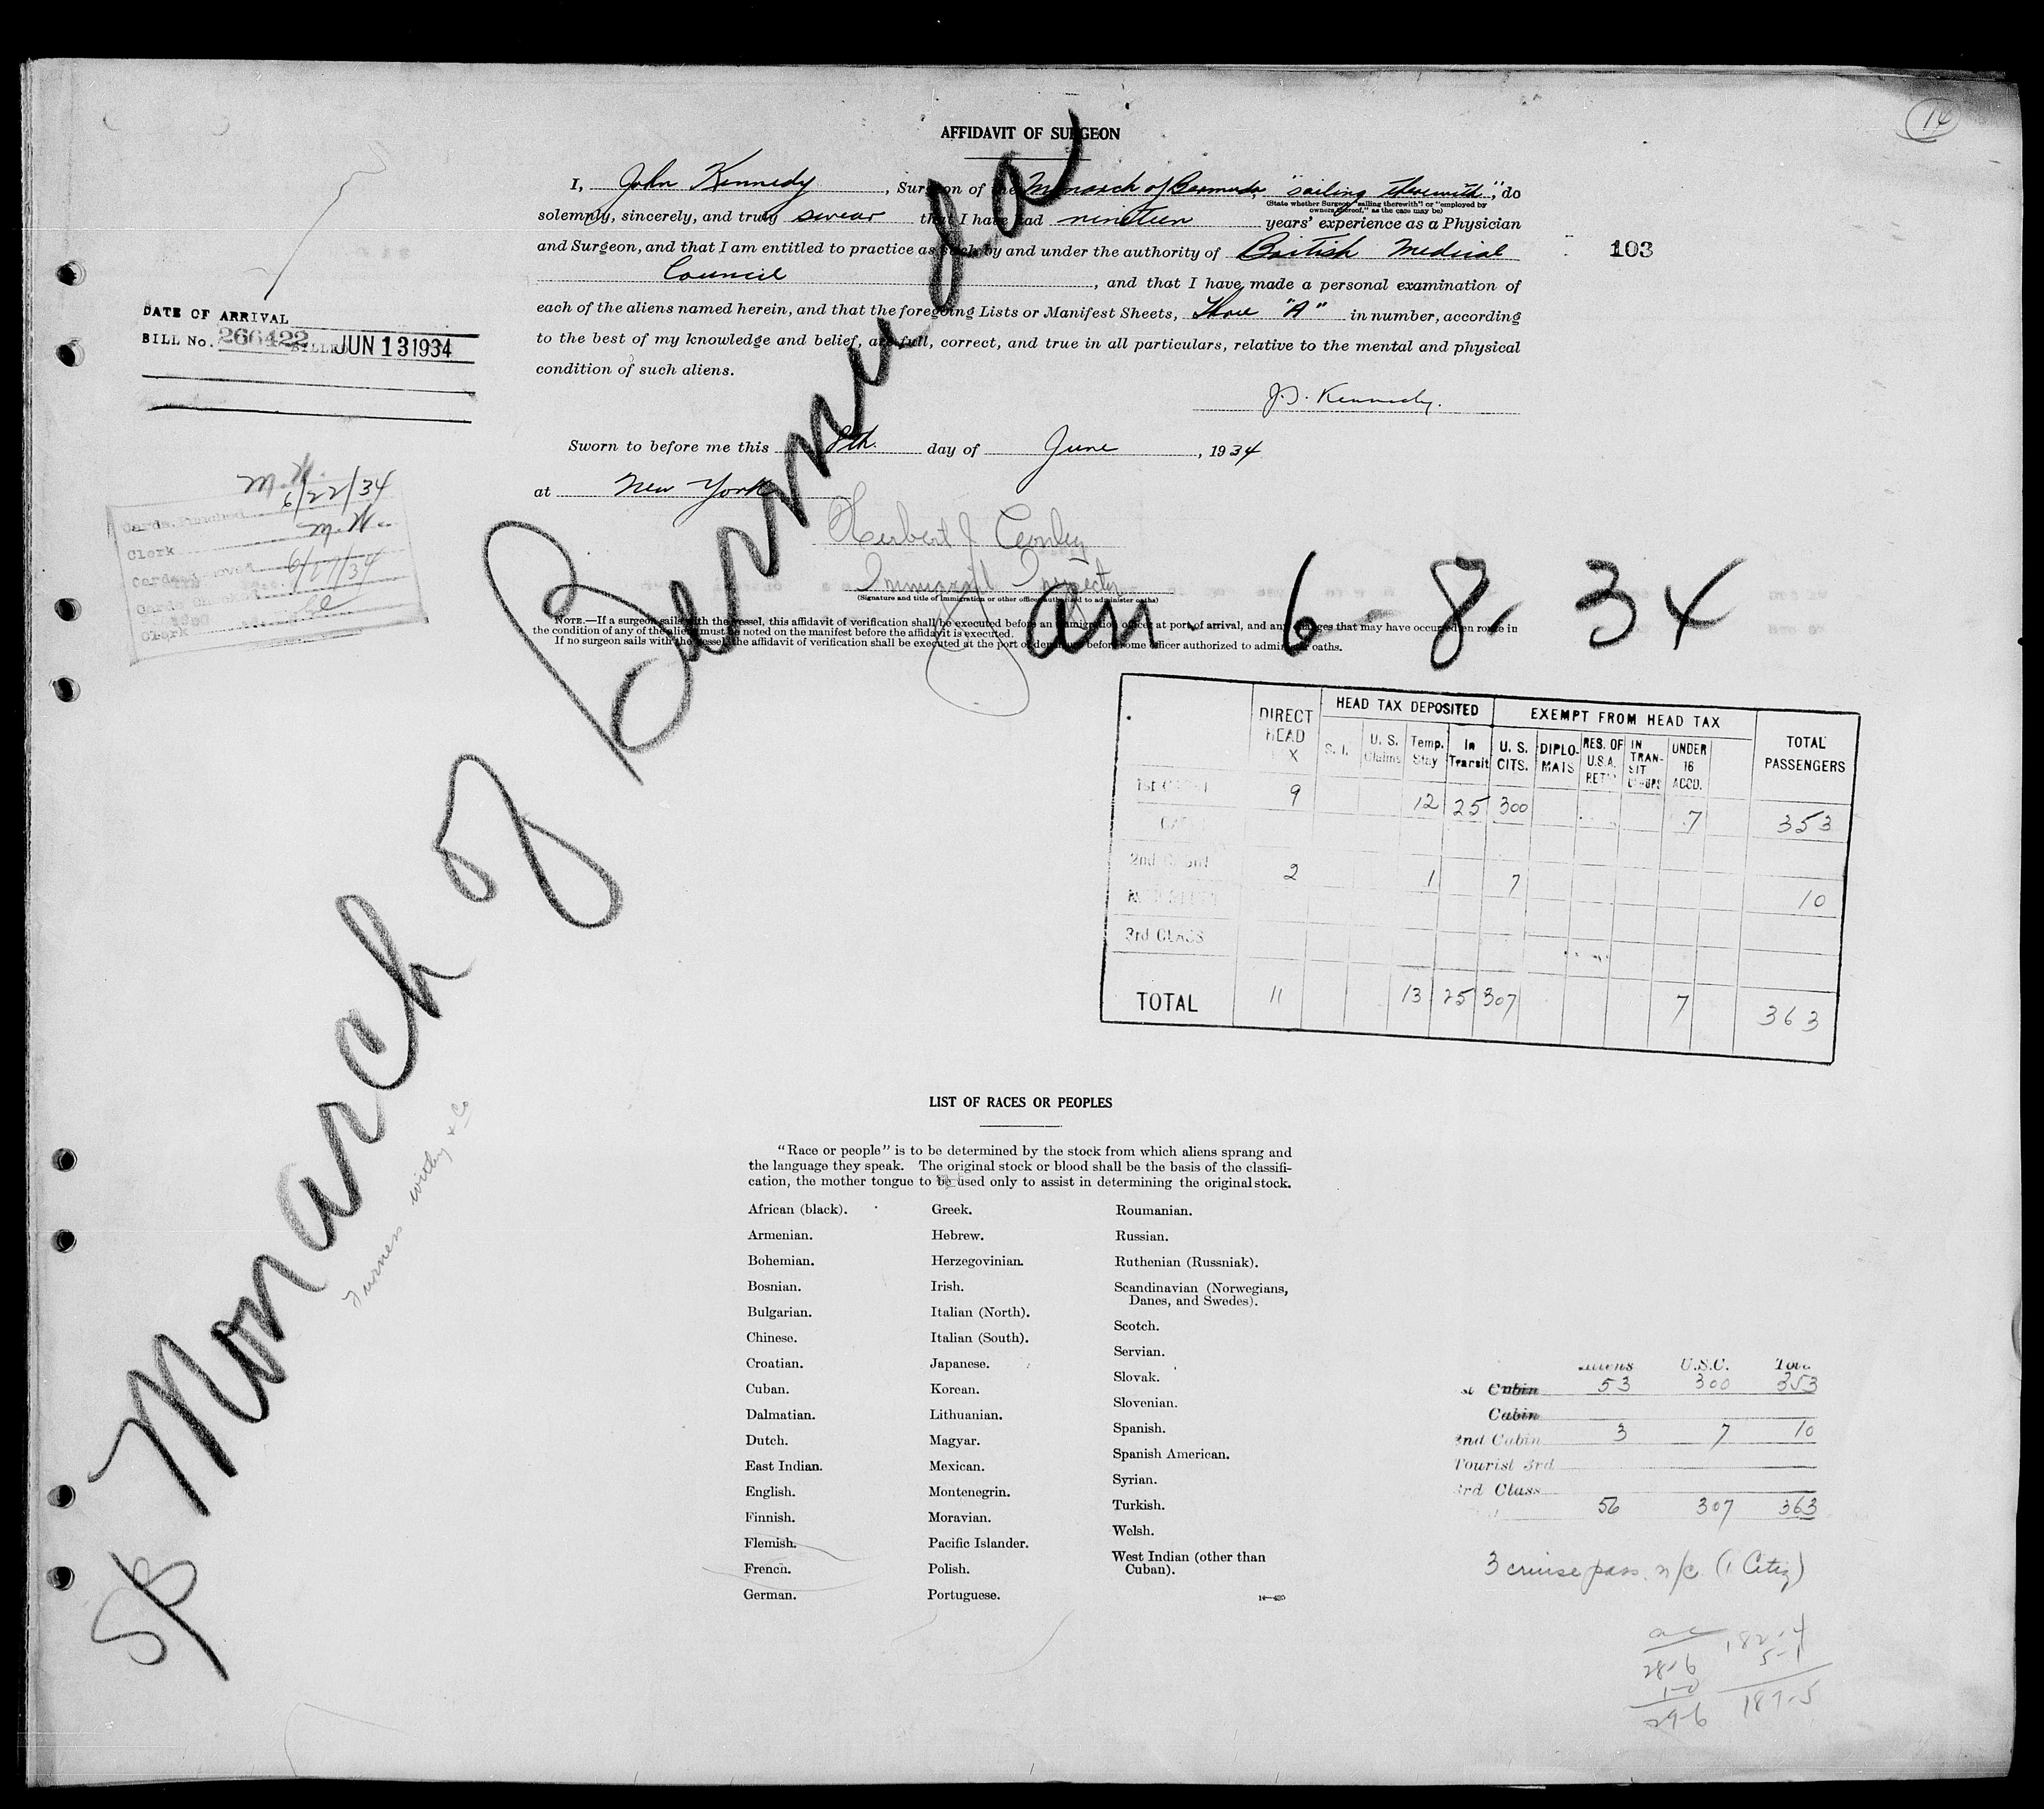 14
AFFIDAVIT OF SURGEON
I, John Kennedy, Surgeon of the Monarch of Bermuda, "sailing therewith", do
(State whether Surgeon "sailing therewith" or "employed by
owners thereof," as the case may be)
solemnly, sincerely, and truly swear that I have had nineteen years' experience as a Physician
and Surgeon, and that I am entitled to practice as such by and under the authority of British Medical
Council, and that I have made a personal examination of
each of the aliens named herein, and that the foregoing Lists or Manifest Sheets, Three "A" in number, according
to the best of my knowledge and belief, are full, correct, and true in all particulars, relative to the mental and physical
condition of such aliens.
J. J. Kennedy.
Sworn to before me this 8th. day of June, 1934
at New York
Herbert J
Immigrant Inspector
(Signature and title of immigration or other officer authorized to administer oaths)
NOTE.—If a surgeon sails with the vessel, this affidavit of verification shall be executed before an immigration officer at port of arrival, and any changes that may have occurred en route in
the condition of any of the aliens must be noted on the manifest before the affidavit is executed.
If no surgeon sails with the vessel, the affidavit of verification shall be executed at the port of departure before some officer authorized to administer oaths.
103
DATE OF ARRIVAL
BILL No. 266422 BILLED JUN 13 1934
M.W.
Cards Punched 6/22/34
Clerk M.W.
6/27/34
Clerk
SS Monarch of Bermuda
Furness Withy & Co
arr. 6-8-34
DIRECT HEAD TAX
HEAD TAX DEPOSITED
EXEMPT FROM HEAD TAX
TOTAL PASSENGERS
S. I.
U. S. Claims
Temp. Stay
In Transit
U. S. CITS.
DIPLOMATS
RES. OF U.S.A. RET'
IN TRANSIT
UNDER 16 ACCD.
1st CABIN 9 12 25 300 7 353
CABIN
2nd CABIN 2 1 7 10
3rd CLASS
TOTAL 11 13 25 307 7 363
LIST OF RACES OR PEOPLES
"Race or people" is to be determined by the stock from which aliens sprang and
the language they speak. The original stock or blood shall be the basis of the classifi-
cation, the mother tongue to be used only to assist in determining the original stock.
African (black).
Armenian.
Bohemian.
Bosnian.
Bulgarian.
Chinese.
Croatian.
Cuban.
Dalmatian.
Dutch.
East Indian.
English.
Finnish.
Flemish.
French.
German.
Greek.
Hebrew.
Herzegovinian.
Irish.
Italian (North).
Italian (South).
Japanese.
Korean.
Lithuanian.
Magyar.
Mexican.
Montenegrin.
Moravian.
Pacific Islander.
Polish.
Portuguese.
Roumanian.
Russian.
Ruthenian (Russniak).
Scandinavian (Norwegians,
Danes, and Swedes).
Scotch.
Servian.
Slovak.
Slovenian.
Spanish.
Spanish American.
Syrian.
Turkish.
Welsh.
West Indian (other than
Cuban).
Aliens U.S.C. Total
Cabin 53 300 353
Cabin
2nd Cabin 3 7 10
Tourist 3rd
3rd Class
56 307 363
3 cruise pass. n/c (1 Citz)
28-6
1-0
29-6
182-4
5-1
187-5